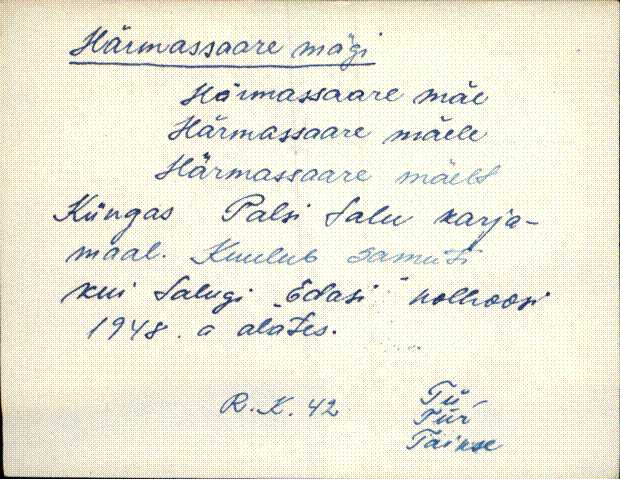 Härmassaare mägi
Härmassaare mäe
Härmassaare mäele
Härmassaare mäelt
Küngas Palsi talu karja-
maal. Kuulub samuti
kui talugi "Edasi" kolhoosi
1948. a alates.
R.K. 42
Tü,
Tür
Taikse